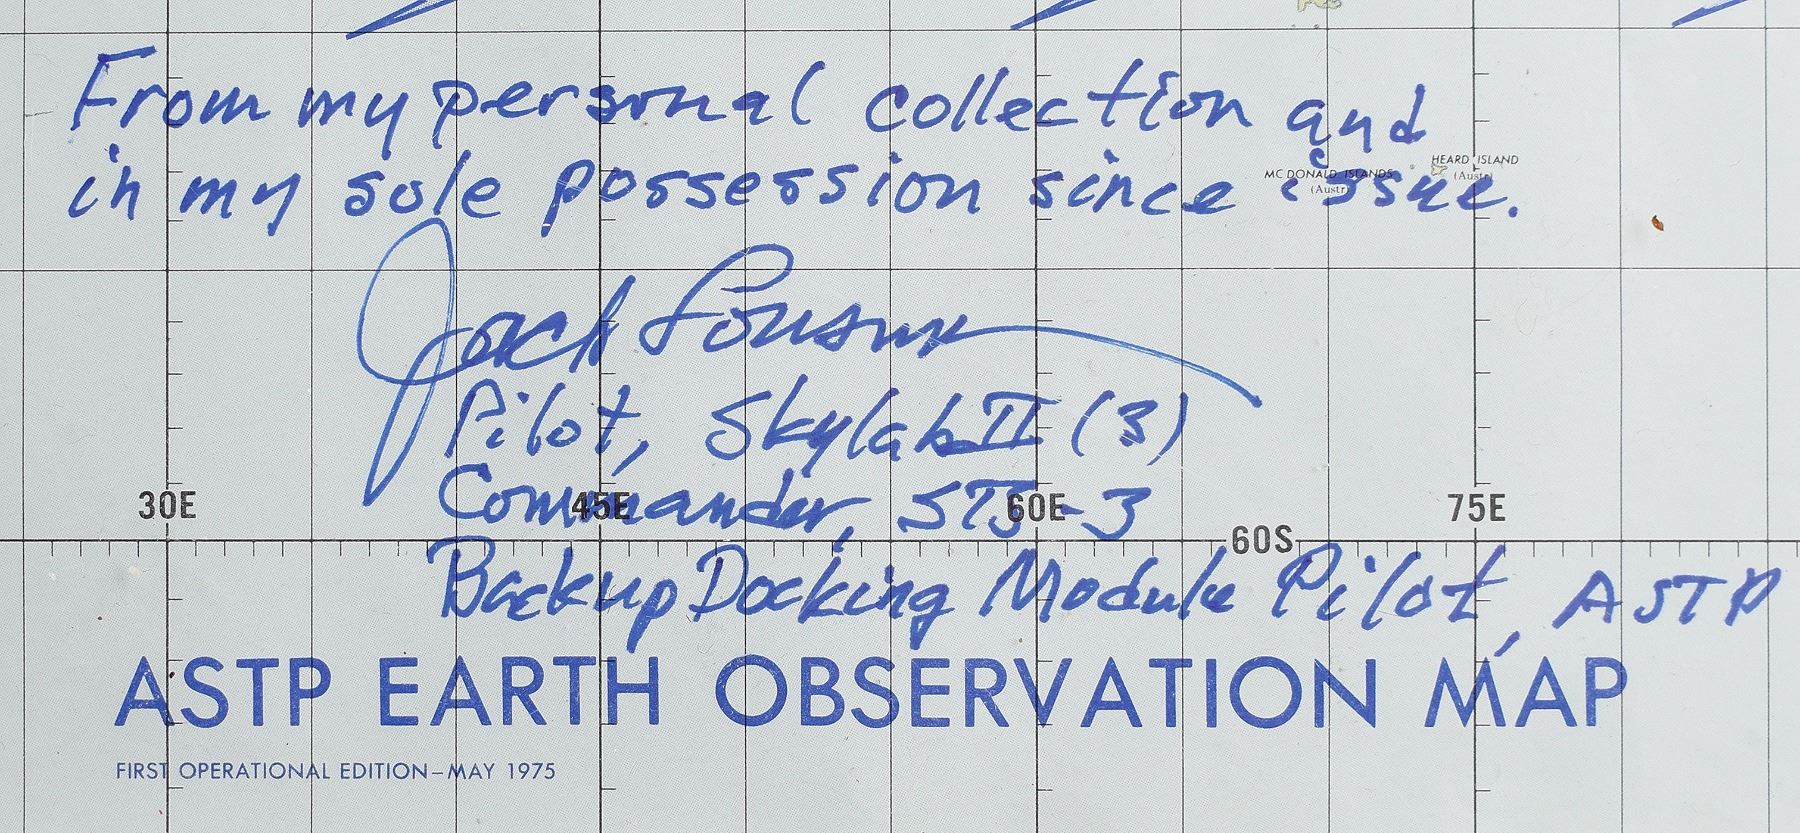 From my personal collection and
HEARD ISLAND
(Austr)
MC DONALD ISLANDS
(Austr)
in my sole possession since issue.
Jack Lousma
Pilot, Skylab II (3)
Commander, STS-3
30E 45E 60E 75E
60S
Backup Docking Module Pilot, ASTP
ASTP EARTH OBSERVATION MAP
FIRST OPERATIONAL EDITION–MAY 1975